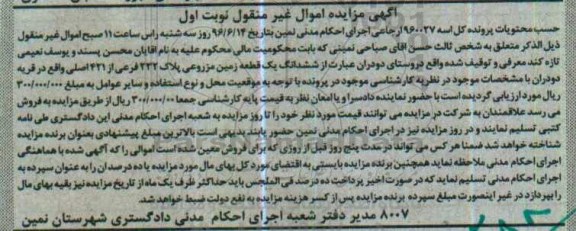 آگهی مزایده اموال غیر منقول نوبت اول
حسب محتویات پرونده کلاسه ۹۶۰۰۲۷ ارجاعی اجرای احکام مدنی نمین بتاریخ ۹۶/۶/۱۴ روز سه شنبه راس ساعت ۱۱ صبح اموال غیر منقول
ذیل الذکر متعلق به شخص ثالث حسن اقای صباحی نمینی که بابت محکومیت مالی محکوم علیه به نام اقایان محسن پسند و یوسف نعیمی
تازه کند معرفی و توقیف شده واقع در روستای دودران عبارت از ششدانگ یک قطعه زمین مزروعی پلاک ۲۳۲ فرعی از ۴۲۱ اصلی واقع در قریه
دودران با مشخصات موجود در نظریه کارشناسی موجود در پرونده با توجه به موقعیت محل و نوع استفاده و سایر عوامل به مبلغ ۳۰۰/۰۰۰/۰۰۰
ریال مورد ارزیابی گردیده است با حضور نماینده دادسرا و با امعان نظر به قیمت پایه کارشناسی جمعا ۳۰۰/۰۰۰/۰۰۰ ریال از طریق مزایده به فروش
می رسد علاقمندان به شرکت در مزایده می توانند قیمت مورد نظر خود را تا روز مزایده به شعبه اجرای احکام مدنی این دادگستری طی نامه
کتبی تسلیم نمایند و در روز مزایده نیز در اجرای احکام مدنی نمین حضور یابند بدیهی است بالاترین مبلغ پیشنهادی بعنوان برنده مزایده
شناخته خواهد شد ضمنا هر کس می تواند در مدت پنج روز قبل از روزی که برای فروش معین شده است اموالی را که آگهی شده با هماهنگی
اجرای احکام مدنی ملاحظه نماید همچنین برنده مزایده بایستی به اقتضای مورد کل بهای مال مورد مزایده یا ده درصد ان را به عنوان سپرده به
اجرای احکام مدنی تسلیم نماید که در صورت اخیر پرداخت ده درصد فی المجلس باید حداکثر ظرف یک ماه از تاریخ مزایده نیز بقیه بهای مال
را بپردازد در غیر اینصورت مبلغ سپرده برنده مزایده پس از کسر هزینه مزایده به نفع دولت ضبط خواهد شد.
۸۰۰۷ مدیر دفتر شعبه اجرای احکام مدنی دادگستری شهرستان نمین